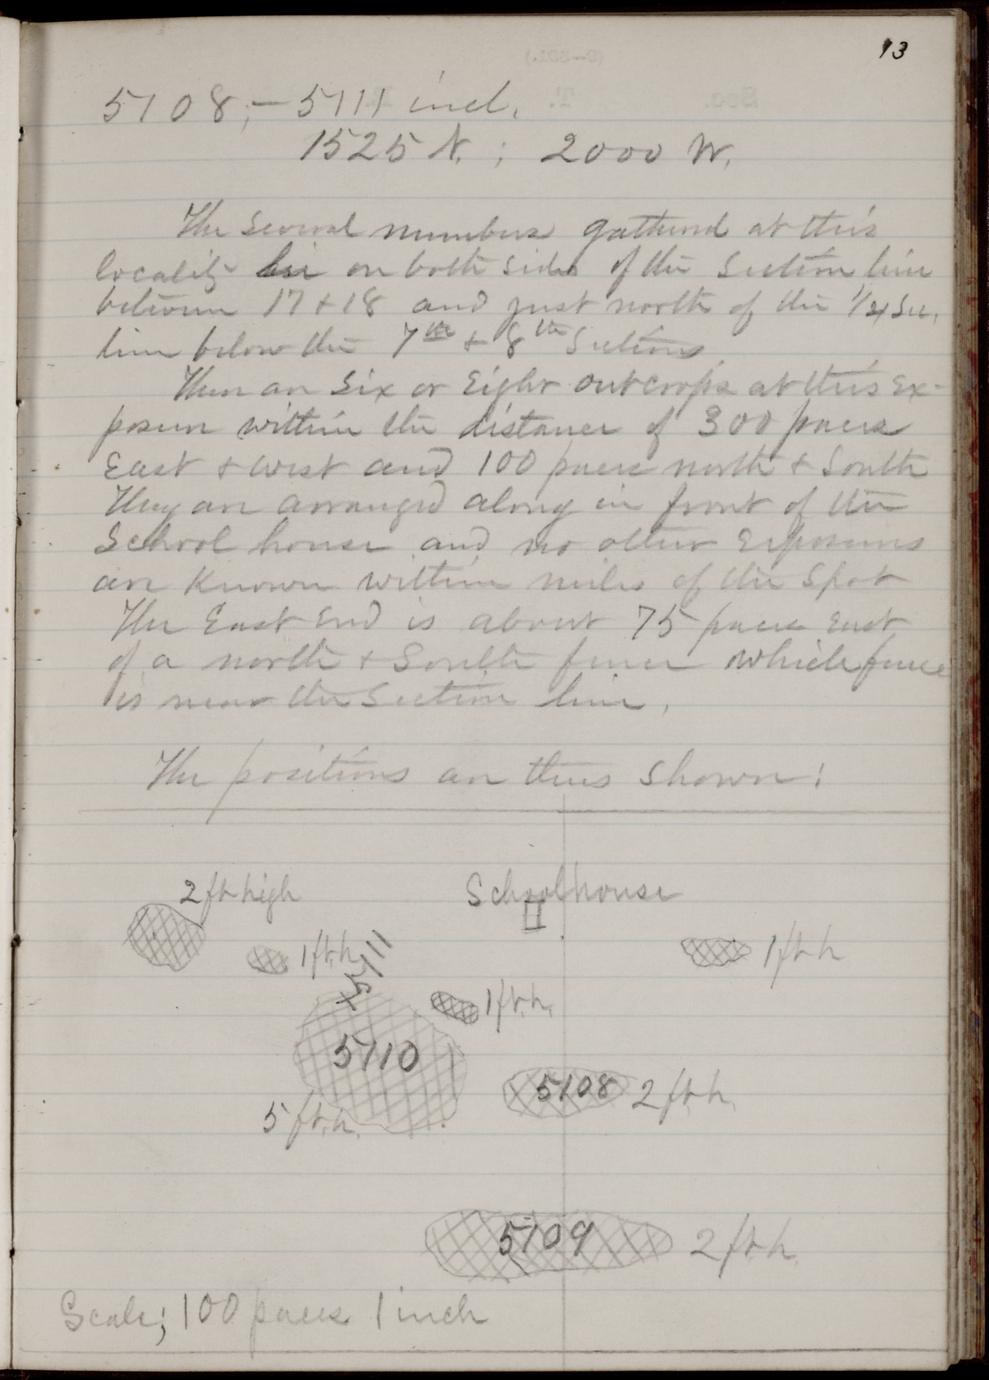 13
5108,- 5111 incl.
1525 N. ; 2000 W.
The several numbers gathered at this
locality lie on both sides of the Section line
between 17 & 18 and just north of the 1/4 Sec.
line below the 7th & 8th Sections
There are Six or Eight outcrops at this ex-
posure within the distance of 300 paces
East & West and 100 paces north & South
They are arranged along in front of the
School house and no other Exposures
are Known within miles of the Spot
The East End is about 75 paces East
of a north & South fence which fence
is near the Section line.
The positions are thus shown:
2 ft high
Schoolhouse
1 ft. h
5111
1 ft h
1 ft. h.
5110
5108 2 ft. h.
5 ft. h.
5109 2 ft. h.
Scale; 100 paces 1 inch